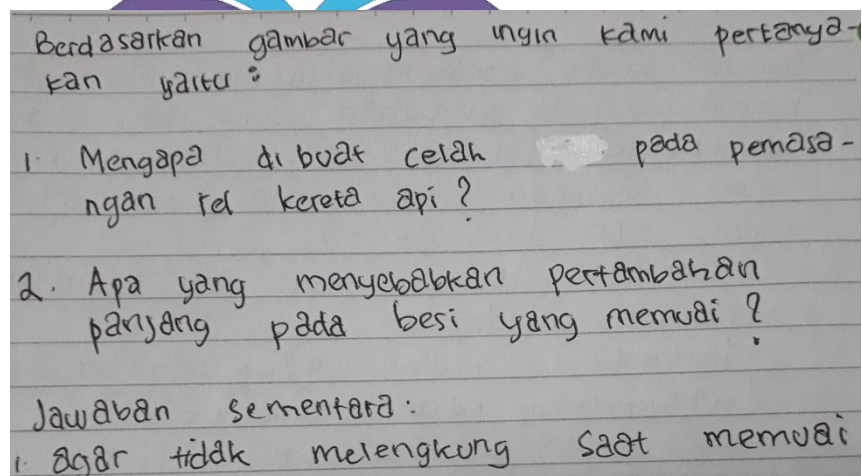 Berdasarkan gambar yang ingin kami pertanya-
kan yaitu :
1. Mengapa dibuat celah pada pemasa-
ngan rel kereta api ?
2. Apa yang menyebabkan pertambahan
panjang pada besi yang memuai ?
Jawaban sementara :
1. agar tidak melengkung saat memuai